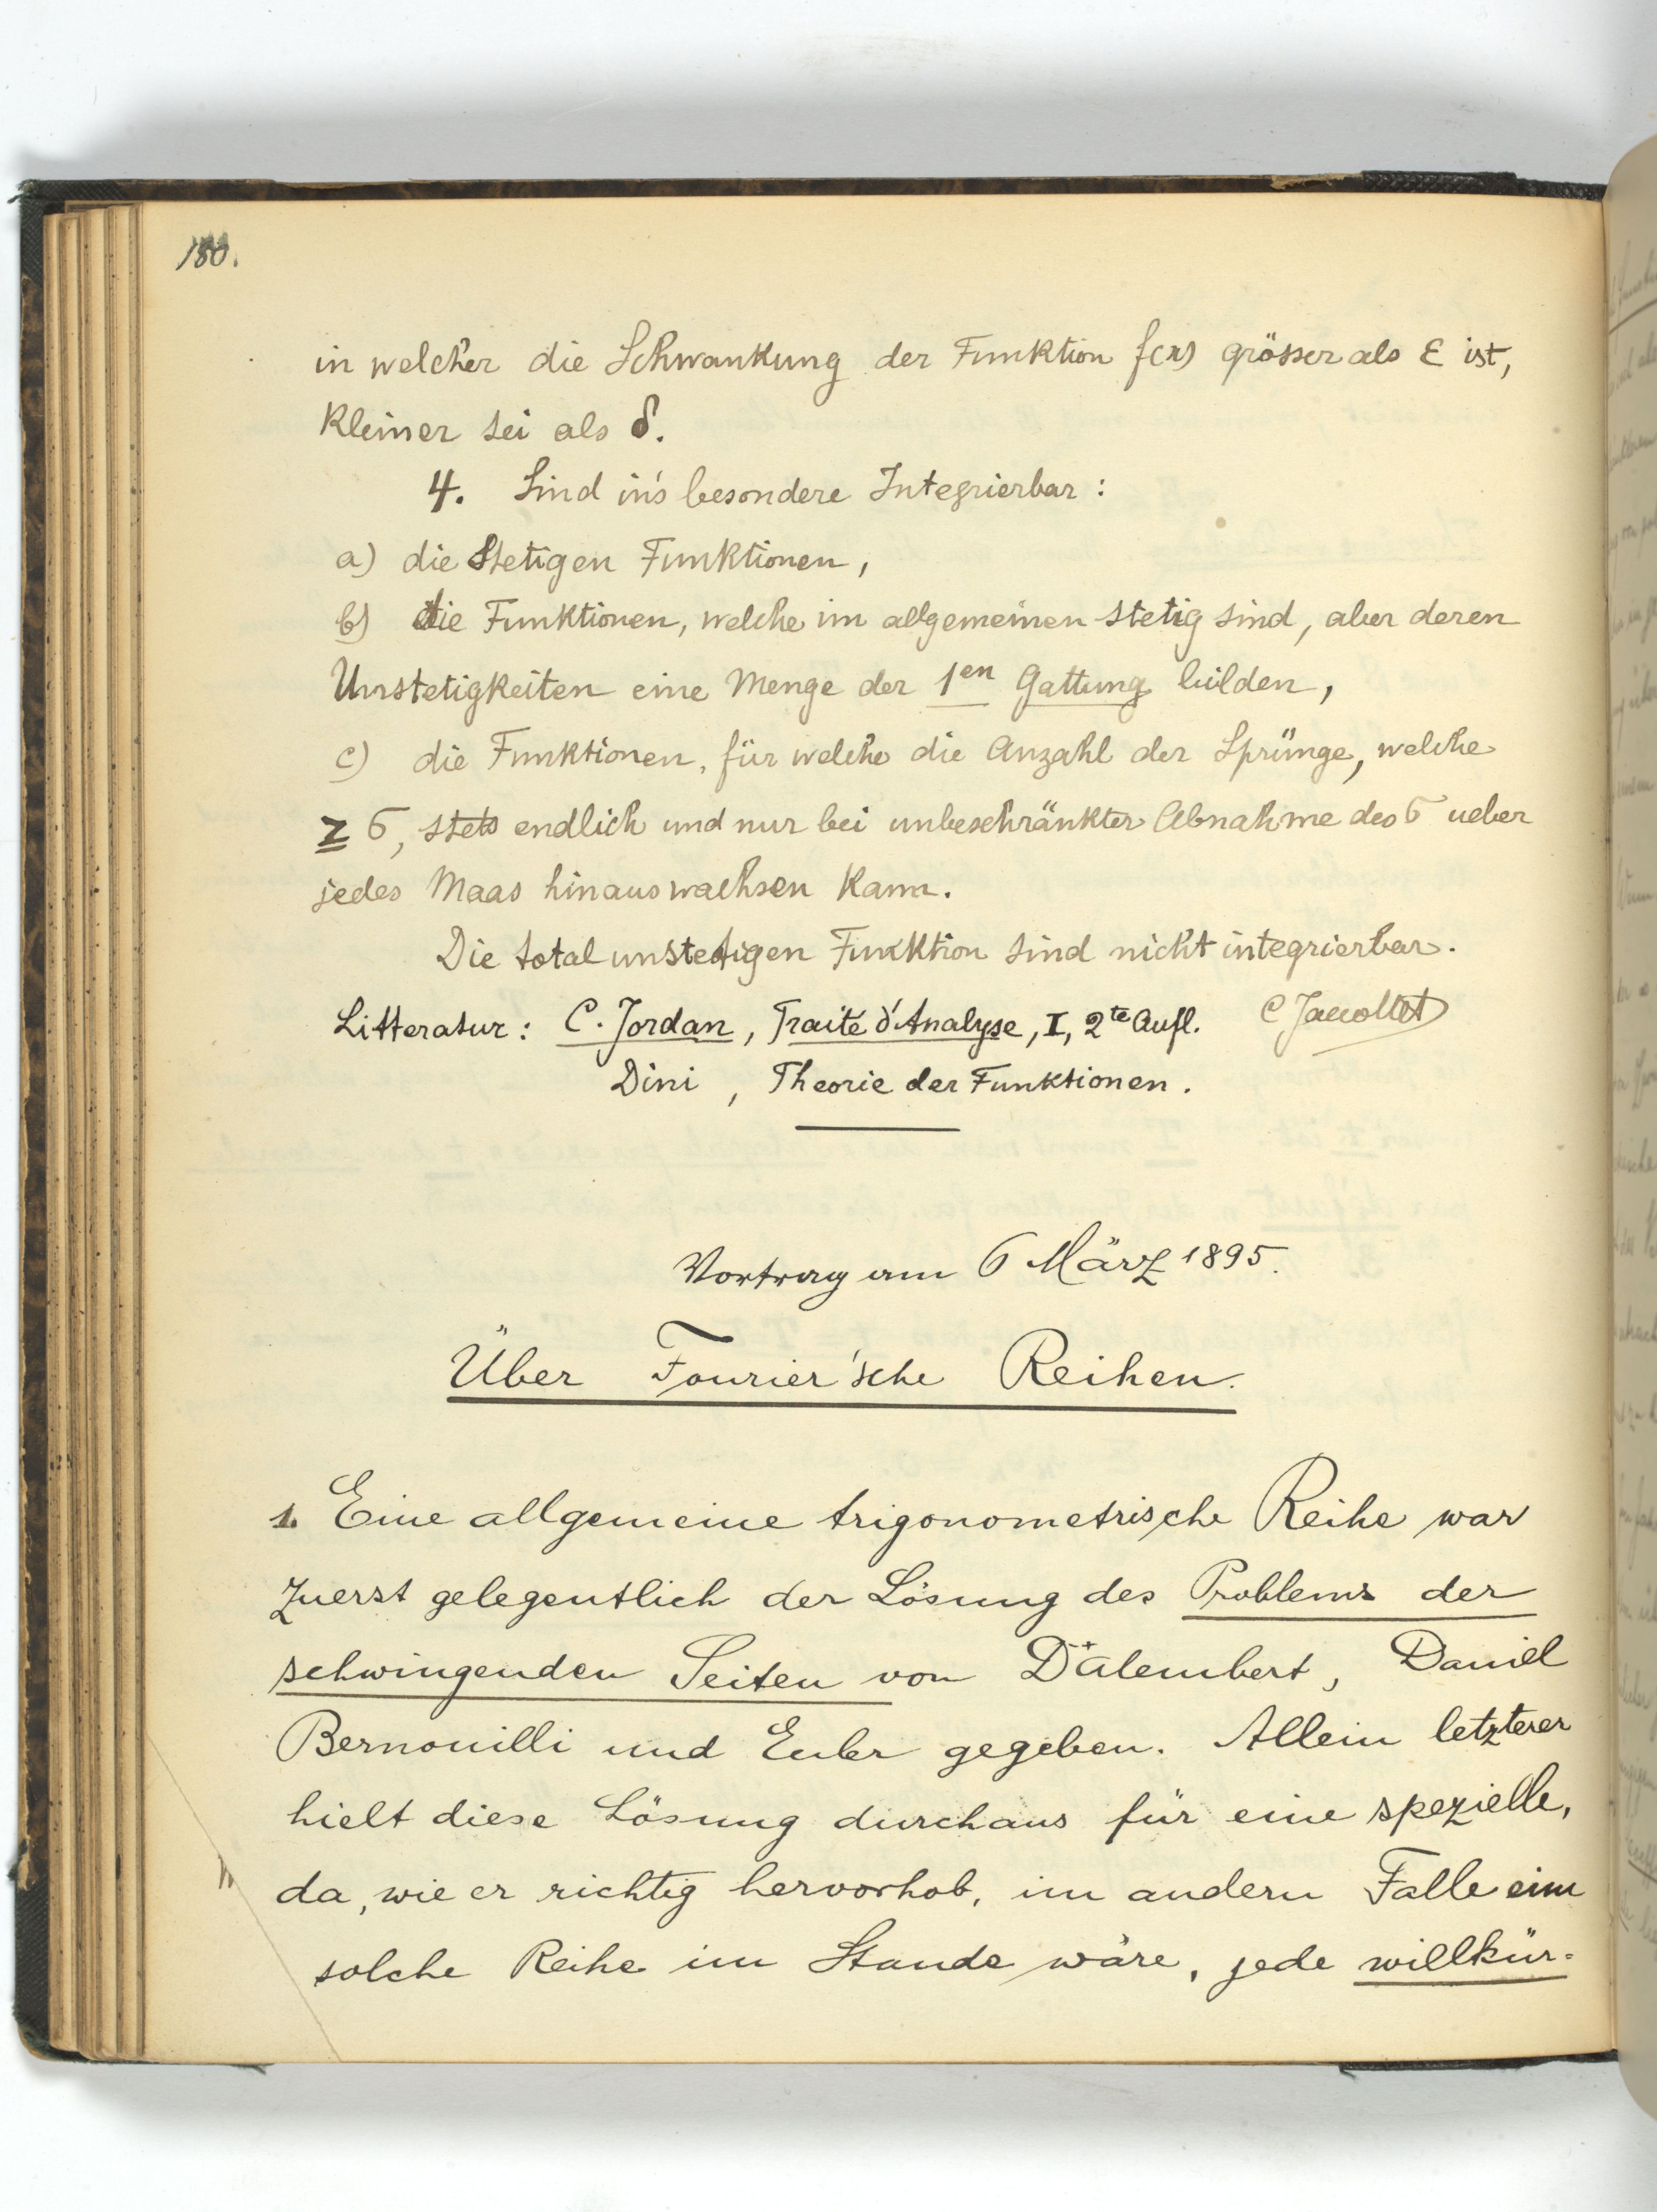 180.
in welcher die Schwankung der Funktion f(x) grösser als ε ist,
kleiner sei als δ.
4. Sind in's besondere Integrierbar:
a) die Stetigen Funktionen,
b) die Funktionen, welche im allgemeinen stetig sind, aber deren
Unstetigkeiten eine Menge der 1en Gattung bilden,
c) die Funktionen, für welche die Anzahl der Sprünge, welche
≥ σ, stets endlich und nur bei unbeschränkter Abnahme des σ ueber
jedes Maas hinauswachsen kann.
Die total unstetigen Funktion sind nicht integrierbar.
Litteratur: C. Jordan, Traité d'Analyse, I, 2te Aufl. C Jaccottet
Dini, Theorie der Funktionen.
Vortrag am 6 März 1895.
Über Fourier'sche Reihen.
1. Eine allgemeine trigonometrische Reihe war
zuerst gelegentlich der Lösung des Problems der
schwingenden Seiten von D'Alembert, Daniel
Bernouilli und Euler gegeben. Allein letzterer
hielt diese Lösung durchaus für eine spezielle,
da, wie er richtig hervorhob, im andern Falle eine
solche Reihe im Stande wäre, jede willkür-